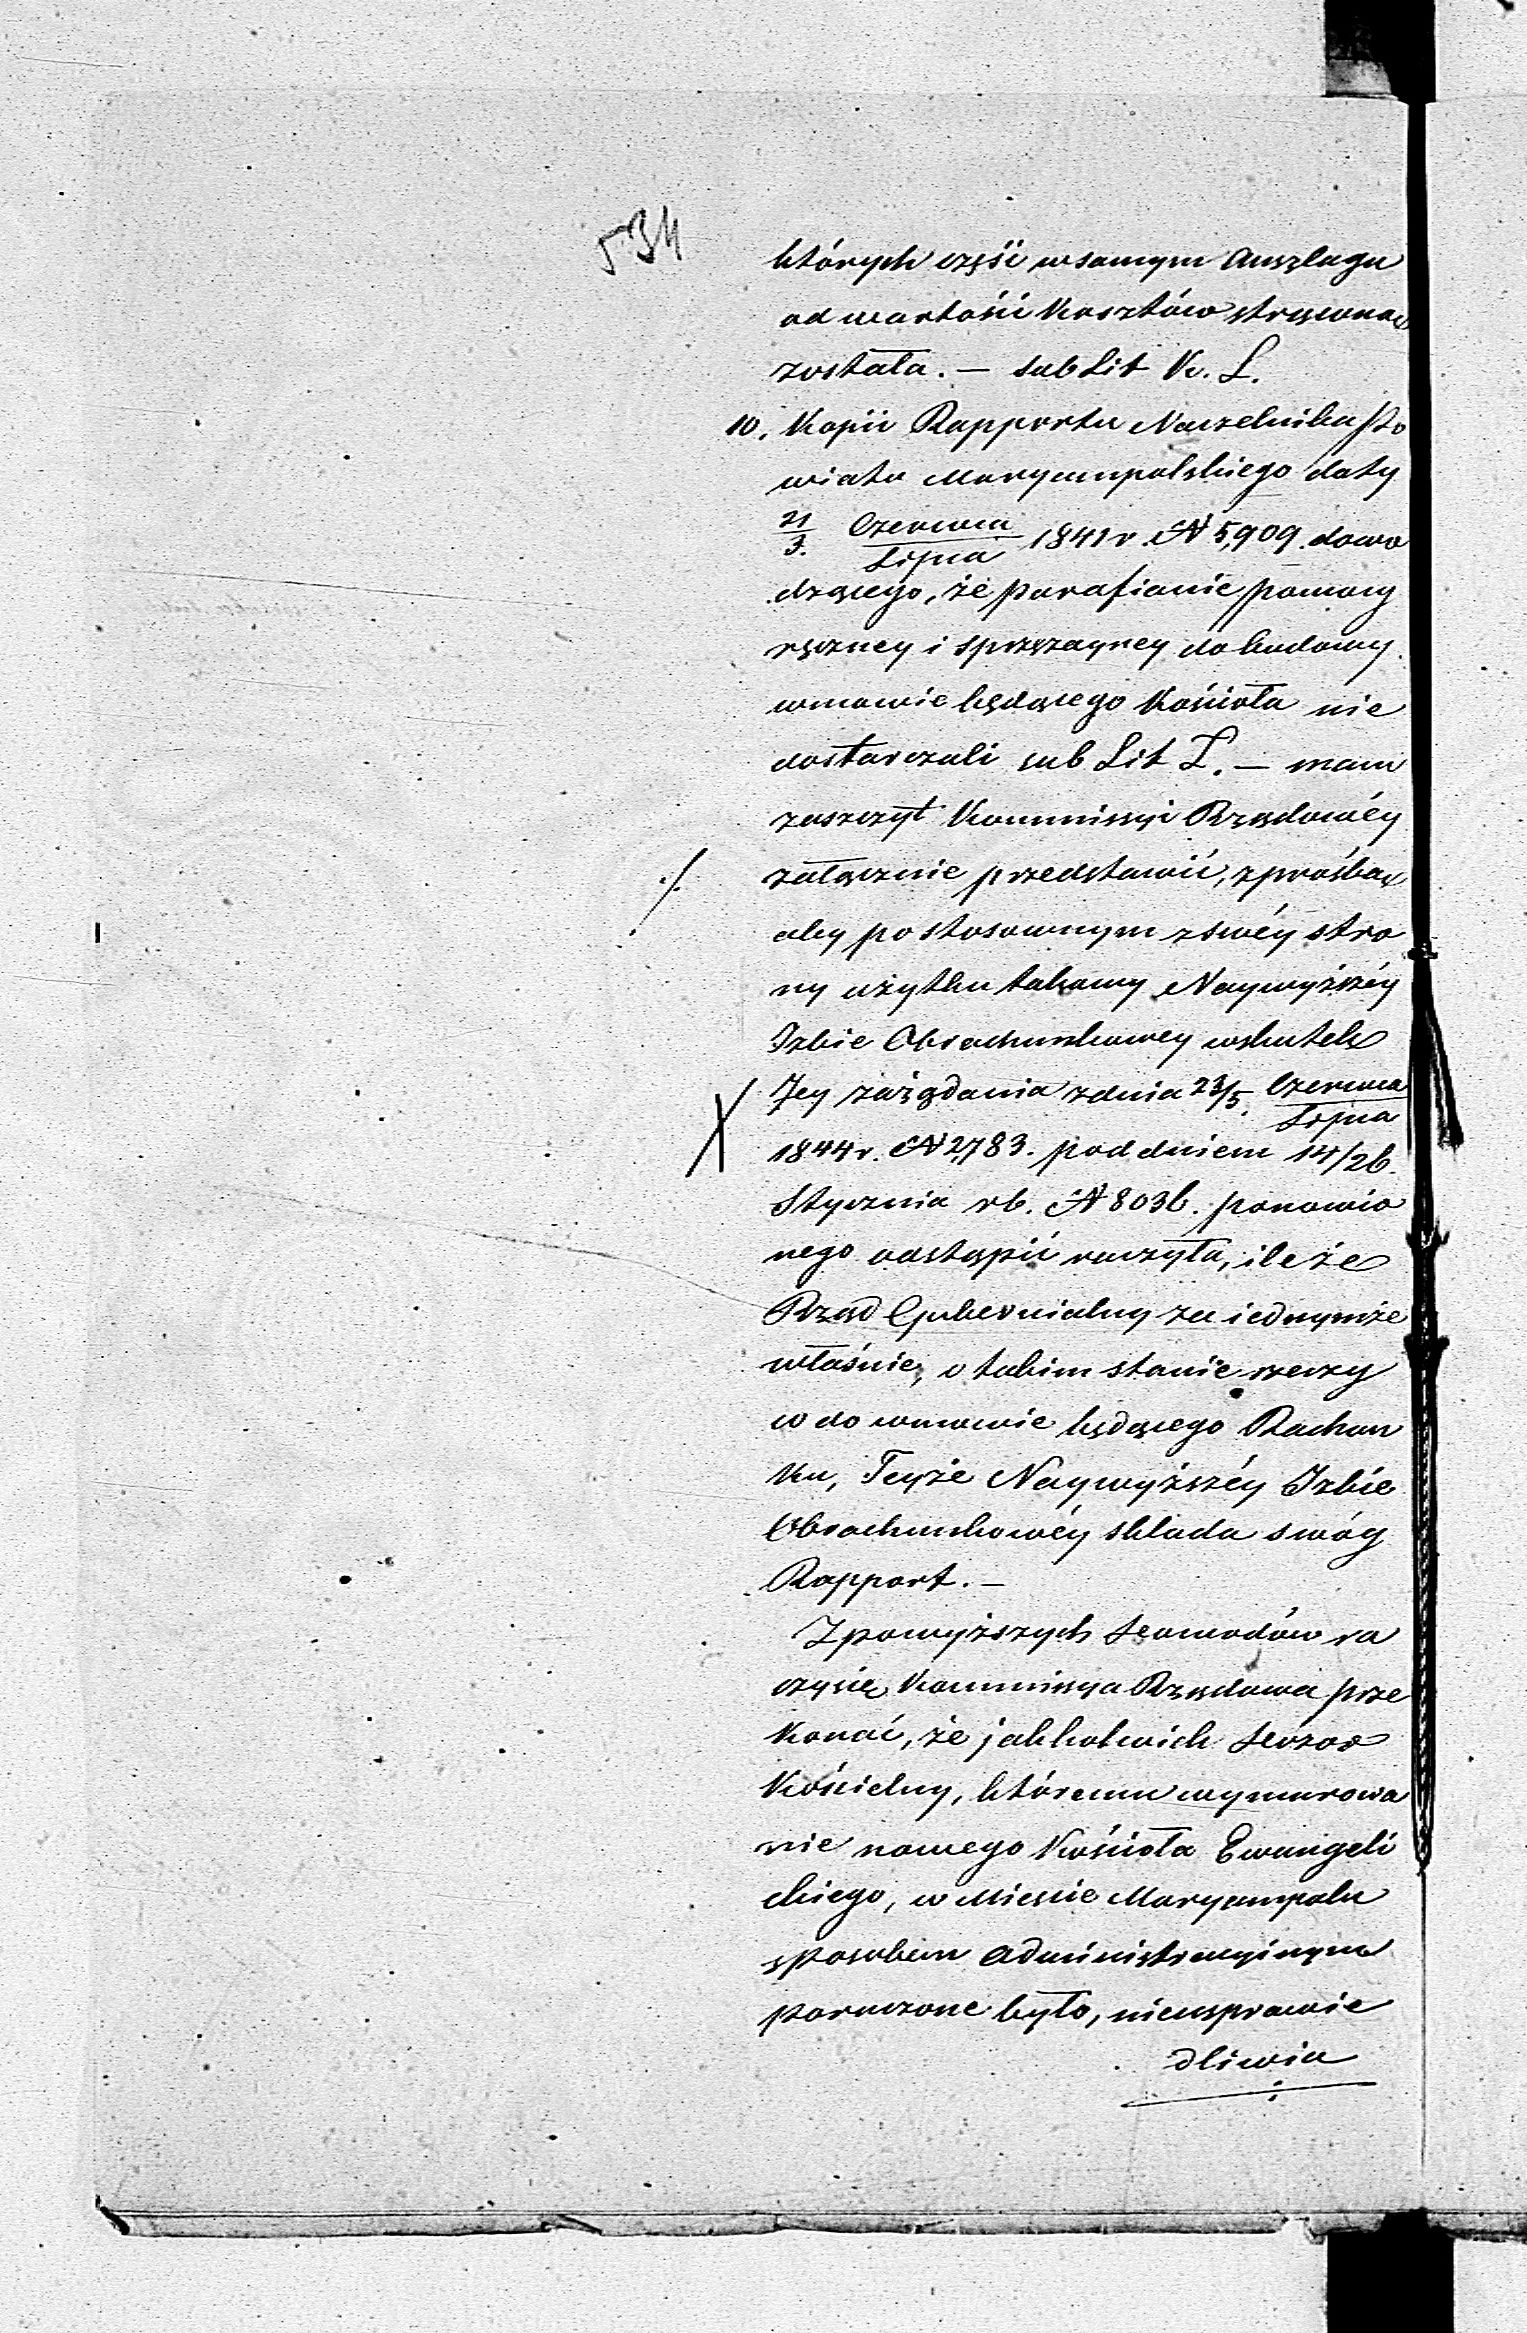 534
których część w samym Anszlagu
od wartości Kosztów strąconą
została. — sub Lit K. L.
10. Kopii Rapportu Naczelnika Po
wiatu Maryampolskiego daty
21/3. Czerwca/Lipca 1841 r. № 5,909. dowo
dzącego, że parafianie pomocy
ręczney i sprzężayney do budowy
w mowie będącego Kościoła nie
dostarczali sub Lit Ł. — mam
zaszczyt Kommissyi Rządowéy
załącznie przedstawić, z prośbą
aby po stosownym z swéy stro
ny użytku takowy Naywyższéy
Izbie Obrachunkowey wskutek
Jey zażądania z dnia 23/5. Czerwca/Lipca
1844 r. № 2,783. pod dniem 14/26.
Stycznia rb. № 8036. ponowio
nego odstąpić raczyła, ile że
Rząd Gubernialny za iednymże
właśnie, o takim stanie rzeczy
co do w mowie będącego Rachun
ku, Teyże Naywyższéy Izbie
Obrachunkowéy składa swóy
Rapport. —
Z powyższych dowodów ra
czy się Kommissya Rządowa prze
konać, że jakkolwiek dozor
Kościelny, któremu wymurowa
nie nowego Kościoła Ewangeli
ckiego, w Mieście Maryampolu
sposobem administracyinym
poruczone było, niesprawie
dliwia